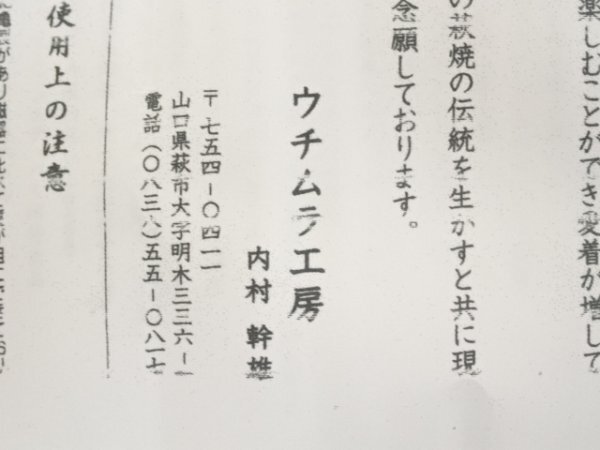 楽しむことができ愛着が増して
の萩焼の伝統を生かすと共に現
念願しております。
ウチムラ工房
内村 幹雄
〒七五四－〇四一一
山口県萩市大字明木三三六－一
電話（〇八三八）五五－〇八一七
使用上の注意